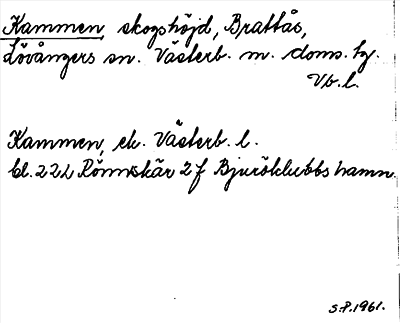 Kammen, skogshöjd, Brattås,
Lövångers sn. Västerb. m. doms. tg.
Vb. l.
Kammen, ek. Västerb. l.
bl. 22L Rönnskär 2f Bjuröklubbs hamn.
S.P. 1961.